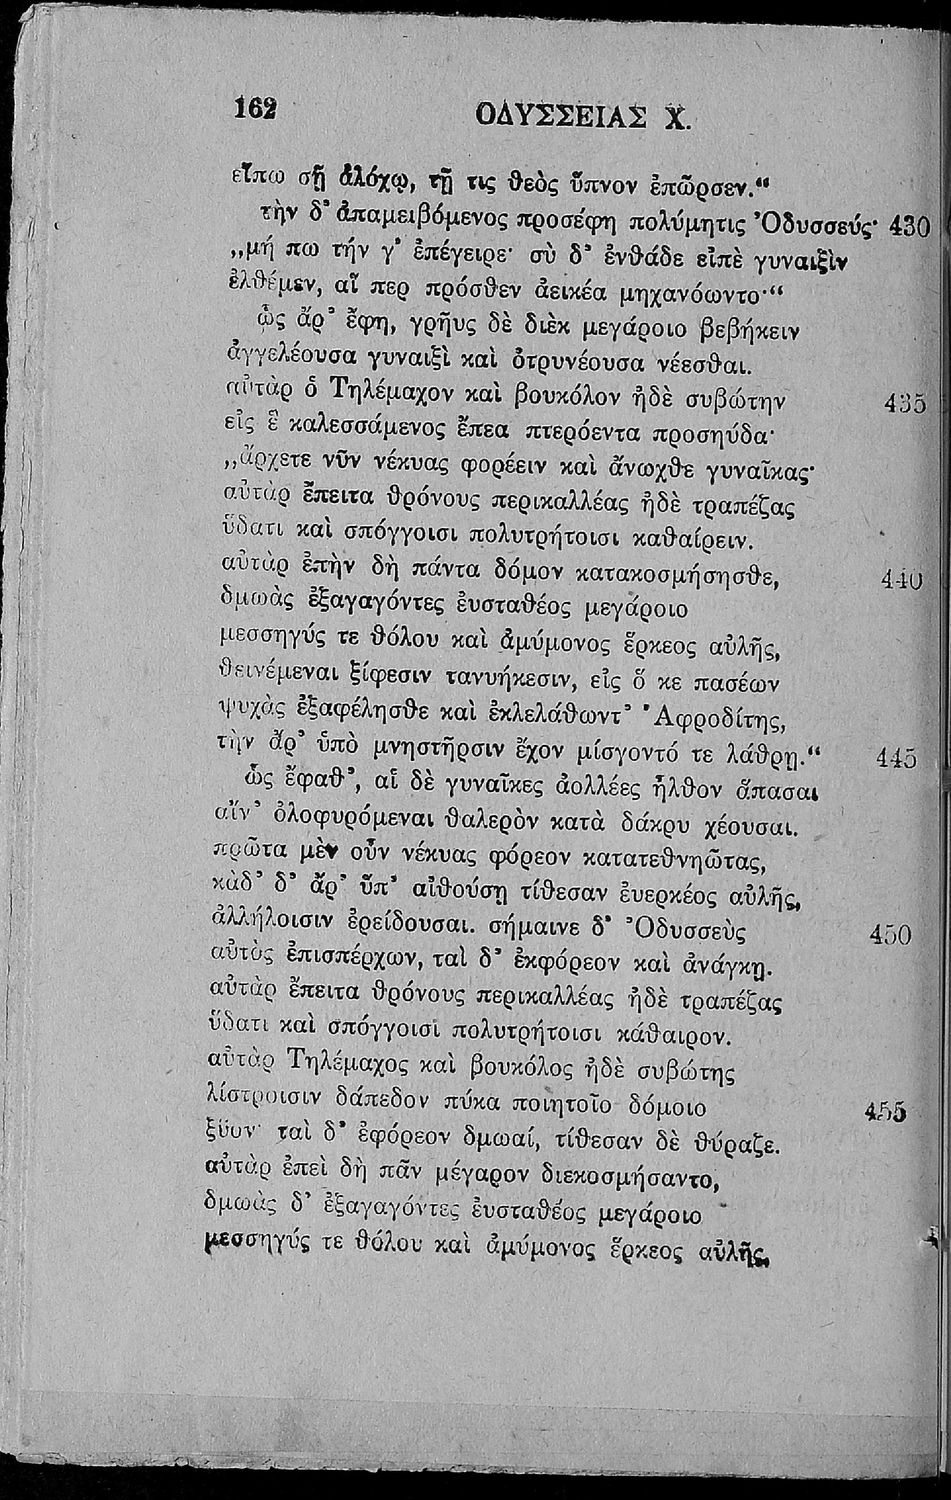 162 ΟΔΥΣΣΕΙΑΣ Χ.
εἴπω σῇ ἀλόχῳ, τῇ τις θεὸς ὕπνον ἐπῶρσεν.“
τὴν δ’ ἀπαμειβόμενος προσέφη πολύμητις Ὀδυσσεύς· 430
„μή πω τήν γ’ ἐπέγειρε· σὺ δ’ ἐνθάδε εἰπὲ γυναιξὶν
ἐλθέμεν, αἵ περ πρόσθεν ἀεικέα μηχανόωντο·“
ὣς ἄρ’ ἔφη, γρῆυς δὲ διὲκ μεγάροιο βεβήκειν
ἀγγελέουσα γυναιξὶ καὶ ὀτρυνέουσα νέεσθαι.
αὐτὰρ ὁ Τηλέμαχον καὶ βουκόλον ἠδὲ συβώτην 435
εἰς ἓ καλεσσάμενος ἔπεα πτερόεντα προσηύδα·
„ἄρχετε νῦν νέκυας φορέειν καὶ ἄνωχθε γυναῖκας·
αὐτὰρ ἔπειτα θρόνους περικαλλέας ἠδὲ τραπέζας
ὕδατι καὶ σπόγγοισι πολυτρήτοισι καθαίρειν.
αὐτὰρ ἐπὴν δὴ πάντα δόμον κατακοσμήσησθε, 440
δμωὰς ἐξαγαγόντες ἐυσταθέος μεγάροιο
μεσσηγύς τε θόλου καὶ ἀμύμονος ἕρκεος αὐλῆς,
θεινέμεναι ξίφεσιν τανυήκεσιν, εἰς ὅ κε πασέων
ψυχὰς ἐξαφέλησθε καὶ ἐκλελάθωντ’ Ἀφροδίτης,
τὴν ἄρ’ ὑπὸ μνηστῆρσιν ἔχον μίσγοντό τε λάθρῃ.“ 445
ὣς ἔφαθ’, αἱ δὲ γυναῖκες ἀολλέες ἦλθον ἅπασαι
αἴν’ ὀλοφυρόμεναι θαλερὸν κατὰ δάκρυ χέουσαι.
πρῶτα μὲν οὖν νέκυας φόρεον κατατεθνηῶτας,
κὰδ’ δ’ ἄρ’ ὕπ’ αἰθούσῃ τίθεσαν ἐυερκέος αὐλῆς,
ἀλλήλοισιν ἐρείδουσαι. σήμαινε δ’ Ὀδυσσεὺς 450
αὐτὸς ἐπισπέρχων, ταὶ δ’ ἐκφόρεον καὶ ἀνάγκῃ.
αὐτὰρ ἔπειτα θρόνους περικαλλέας ἠδὲ τραπέζας
ὕδατι καὶ σπόγγοισι πολυτρήτοισι κάθαιρον.
αὐτὰρ Τηλέμαχος καὶ βουκόλος ἠδὲ συβώτης
λίστροισιν δάπεδον πύκα ποιητοῖο δόμοιο 455
ξῦον· ταὶ δ’ ἐφόρεον δμωαί, τίθεσαν δὲ θύραζε.
αὐτὰρ ἐπεὶ δὴ πᾶν μέγαρον διεκοσμήσαντο,
δμωὰς δ’ ἐξαγαγόντες ἐυσταθέος μεγάροιο
μεσσηγύς τε θόλου καὶ ἀμύμονος ἕρκεος αὐλῆς,